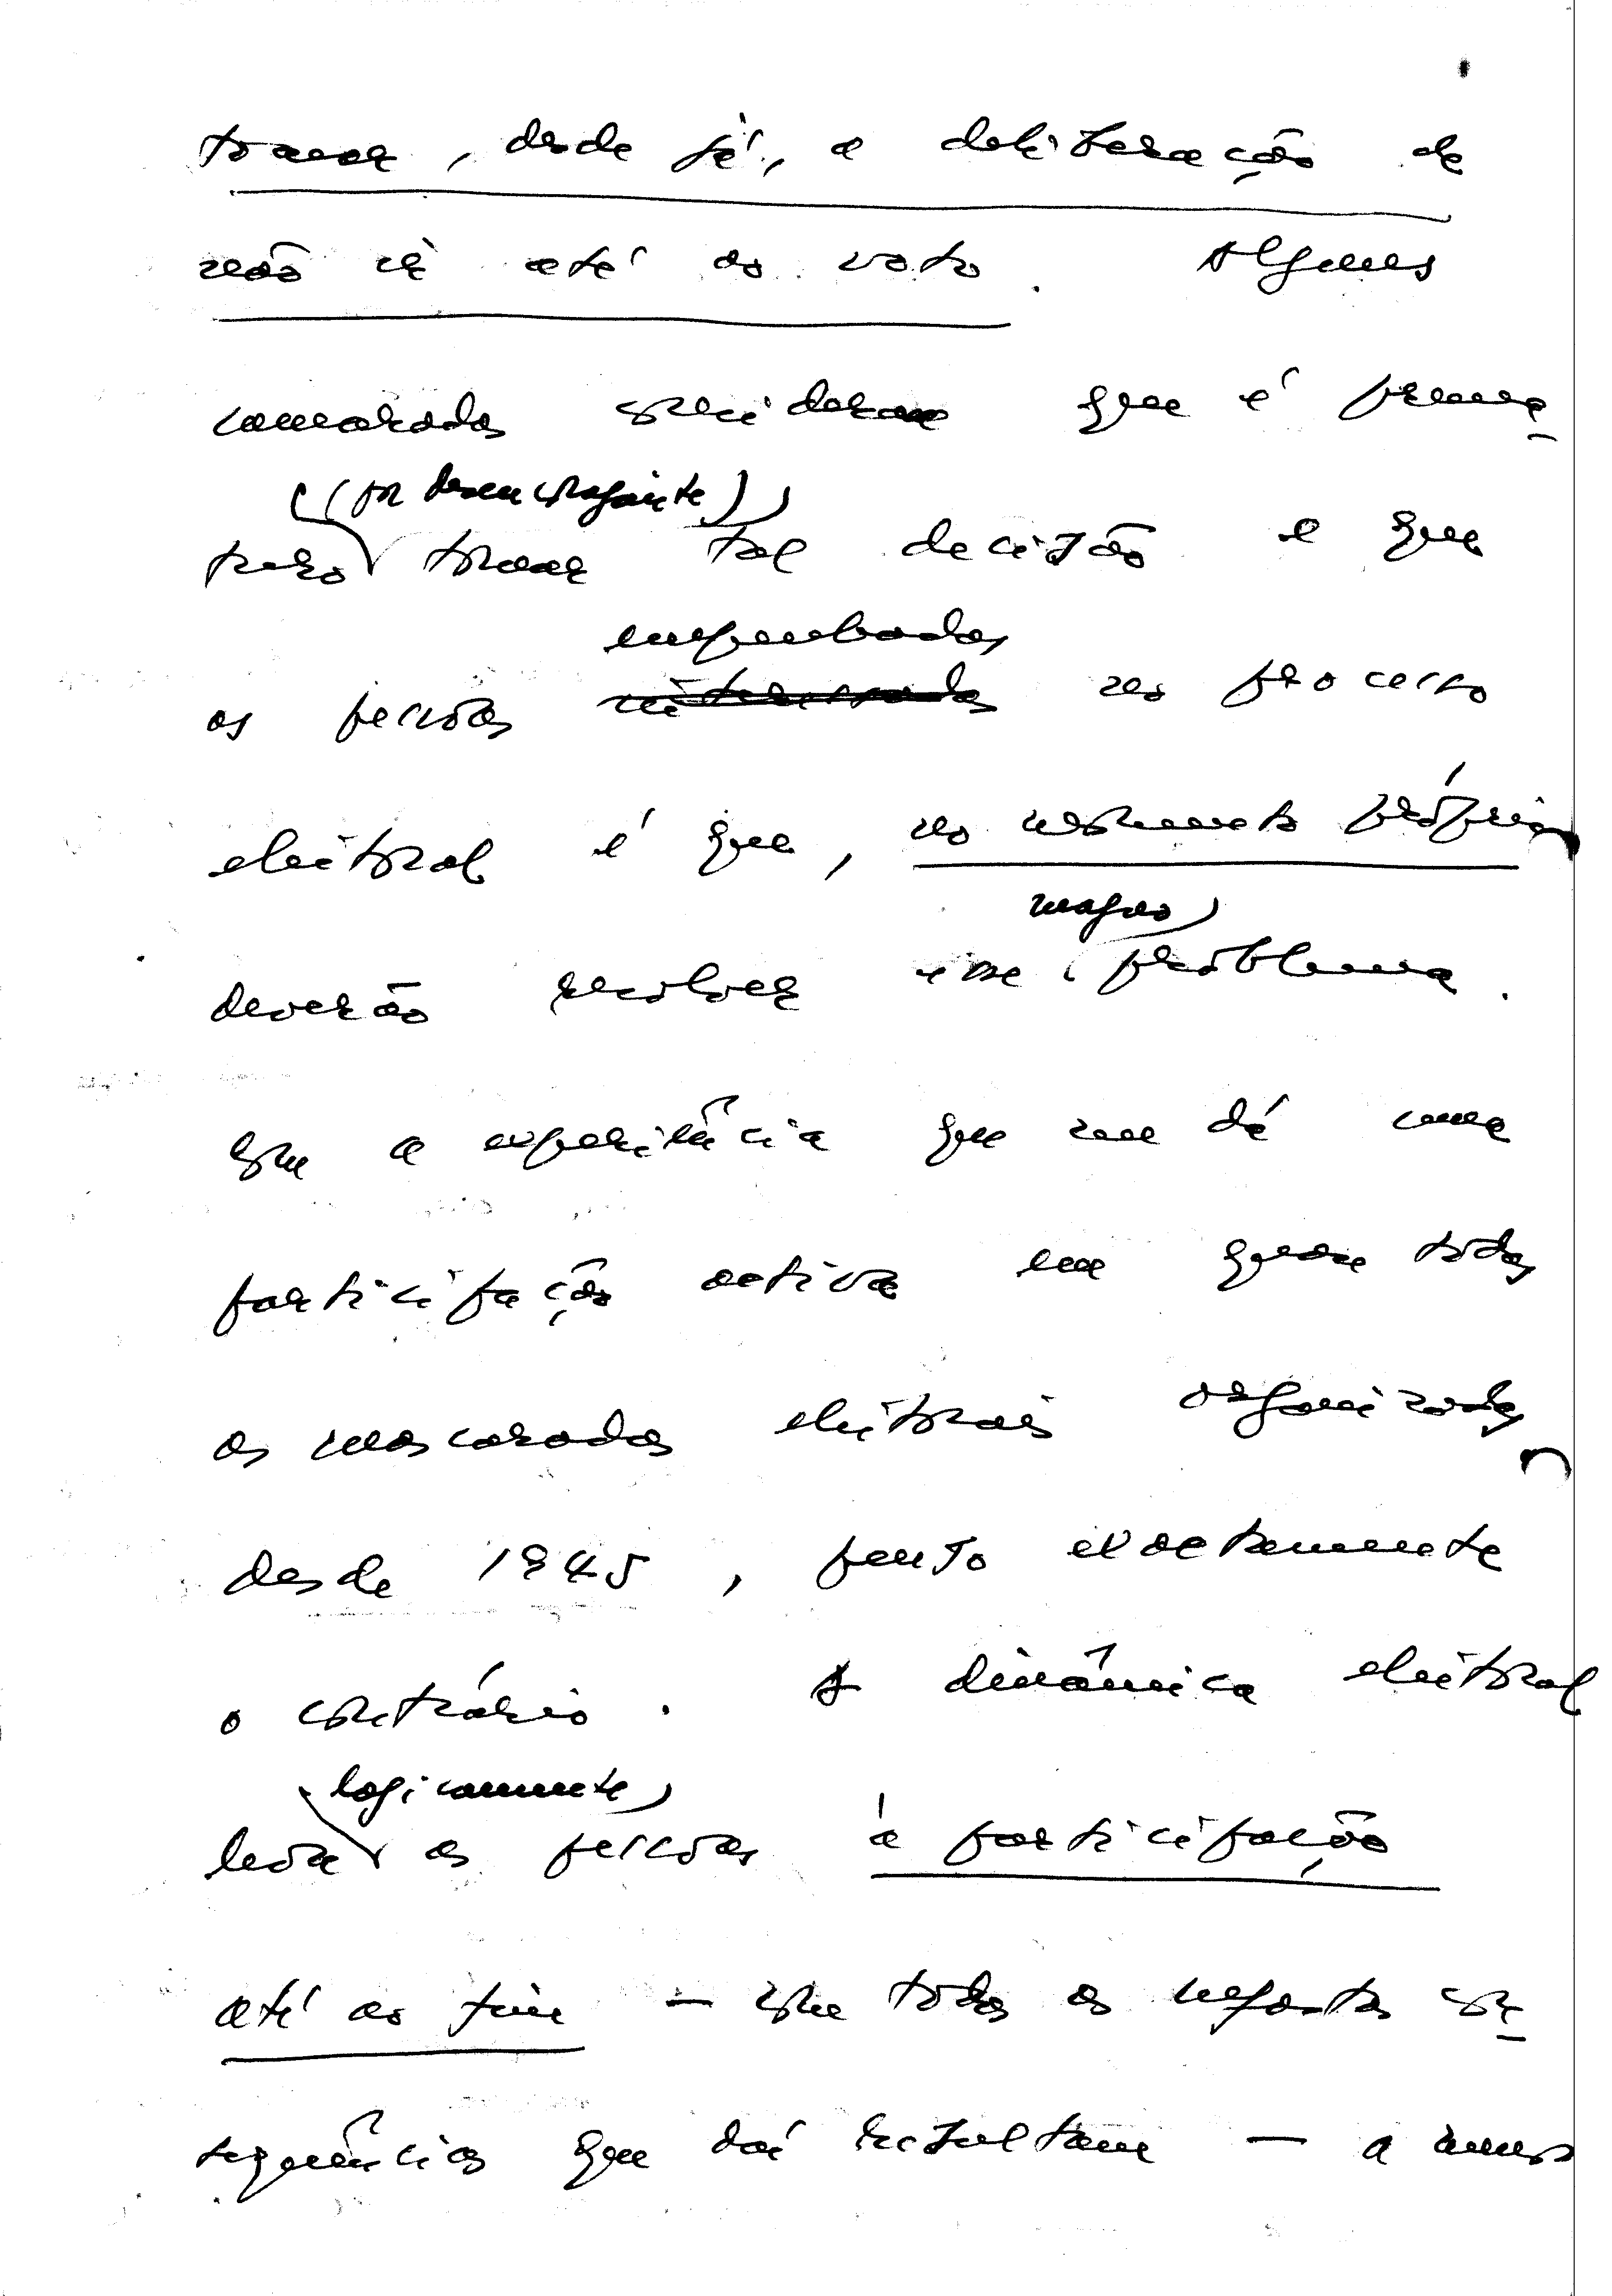 tomar, desde já, a deliberação de
não ir até ao voto. Alguns
camaradas consideram que é prema-
(por desencorajante)
turo tomar tal decisão e que
empenhadas
as pessoas interessadas no processo
eleitoral é que, no momento próprio,
magno
deverão resolver esse problema.
Com a experiência que me dá uma
participação activa em quase todas
as mascaradas eleitorais organizadas
desde 1945, penso exactamente
o contrário. A dinâmica eleitoral
logicamente
leva as pessoas à participação
até ao fim — com todas as nefastas con-
sequências que daí resultam — a menos